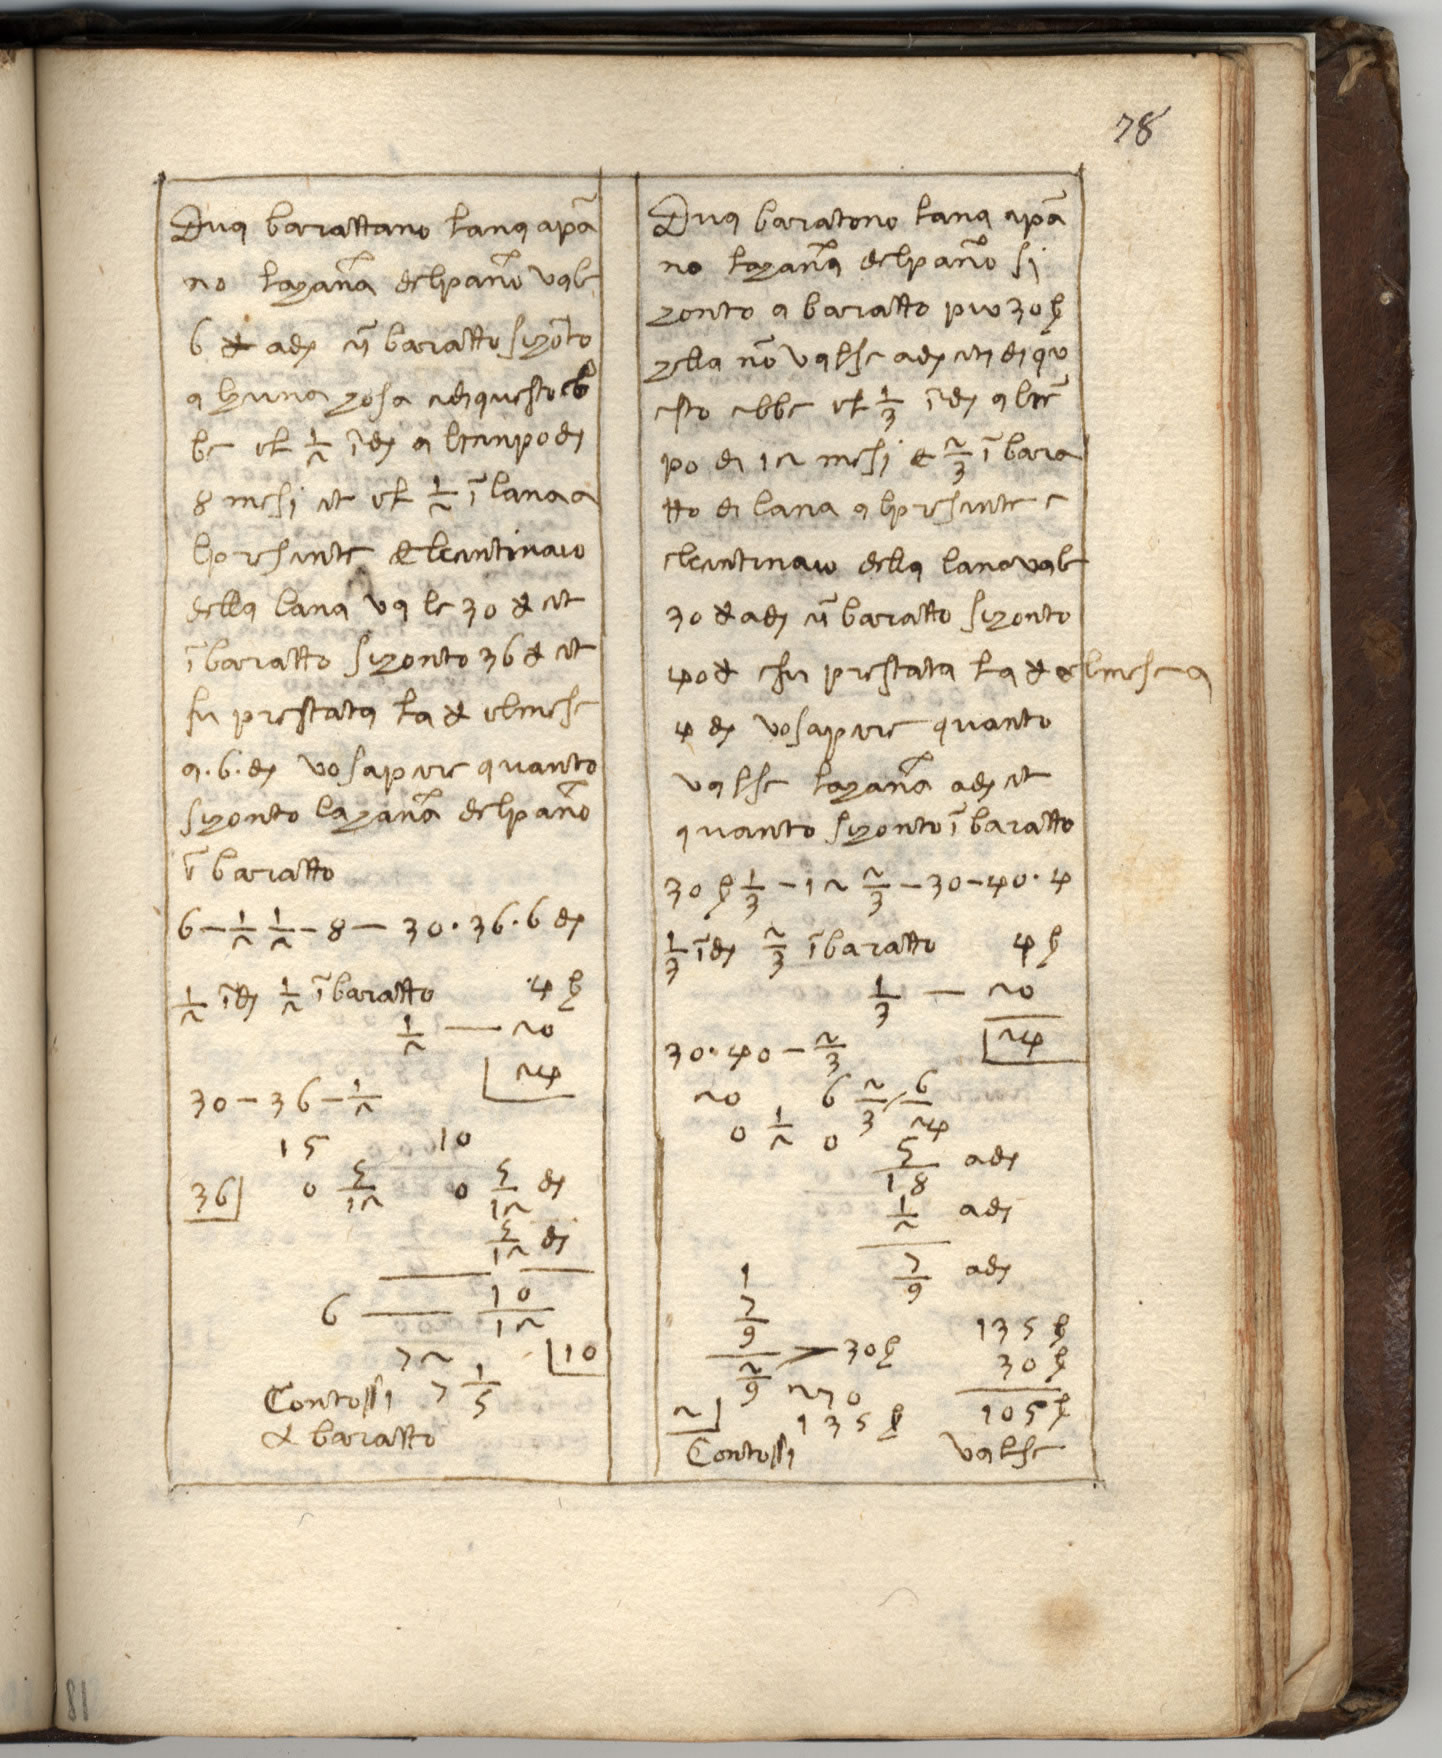 78
Dua barattano lana apā
no lazanā delpanō vale
6 ₤ adj ī baratto sizōto
albuna zosa adiquesto eb
be el 1/2 ī dj altenpo dj
8 mesi et el 1/2 ī lana a
lpresente et lcentinaio
della lana vale 30 ₤ et
ībaratto sizonto 36 ₤ et
fu prestata la ₤ elmese
a·6·dj vosapere quanto
sizonto lazanā delpanō
ī baratto
6–1/2 1/2–8–30·36·6 dj
1/2 īdj 1/2 ībaratto 4 ẞ
1/2 — 20
24
30–36–1/2
15 10
36 0 5/12 0 5/12 dj
5/12 dj
6 — 10/12
72 10
Contossi 7 1/5
a baratto
Dua baratono lana apā
no lazanā delpanō si
zonto a baratto piu 30 ẞ
zella nō valse adj eti di qu
esto ebbe el 1/3 ī dj altē
po di 12 mesi e 2/3 ī bara
tto di lana alpresente e
elcentinaio della lana vale
30 ₤ adj ī baratto sizonto
40 ₤ efu prestata la ₤ elmese a
4 dj vosapere quanto
valse lazanā adj et
quanto sizonto ī baratto
30 ẞ 1/3–12 2/3–30–40·4
1/3 īdj 2/3 ībaratto 4 ẞ
1/3 — 20
24
30·40–2/3
20 6 2/3 6/24
0 1/2 0
5/18 adj
1/2 adj
7/9 adj
1
7/9 135 ẞ
30 ẞ 30 ẞ
2/9 270 105 ẞ
2 135 ẞ
Contossi valse
81